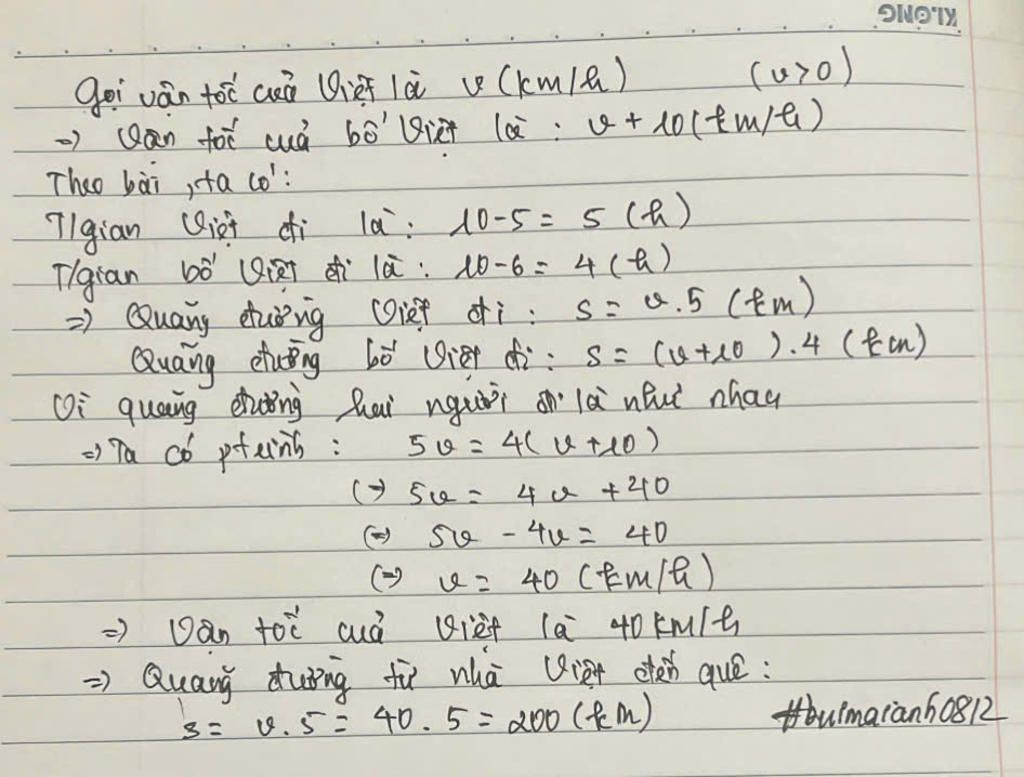 KLONG
Gọi vận tốc của Việt là v (km/h) (v>0)
=> Vận tốc của bố Việt là : v + 10 (km/h)
Theo bài, ta có:
T/gian Việt đi là: 10-5 = 5 (h)
T/gian bố Việt đi là: 10-6 = 4 (h)
=> Quãng đường Việt đi : s = v.5 (km)
Quãng đường bố Việt đi : s = (v+10).4 (km)
Vì quãng đường hai người đi là như nhau
=> Ta có ptrình : 5v = 4(v+10)
(=) 5v = 4v + 40
(=) 5v - 4v = 40
(=) v = 40 (km/h)
=> Vận tốc của Việt là 40 km/h
=> Quãng đường từ nhà Việt đến quê :
s = v.5 = 40.5 = 200 (km) #buimaianh0812